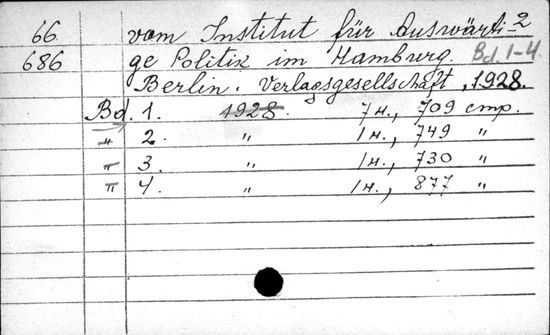 66 vom Institut für Auswärti- 2
686 ge Politik im Hamburg. Bd. 1-4.
Berlin. Verlagsgesellschaft, 1928.
Bd. 1. 1928. 7 н., 709 стр.
" 2. " 1 н., 749 "
" 3. " 1 н., 730 "
" 4. " 1 н., 877 "